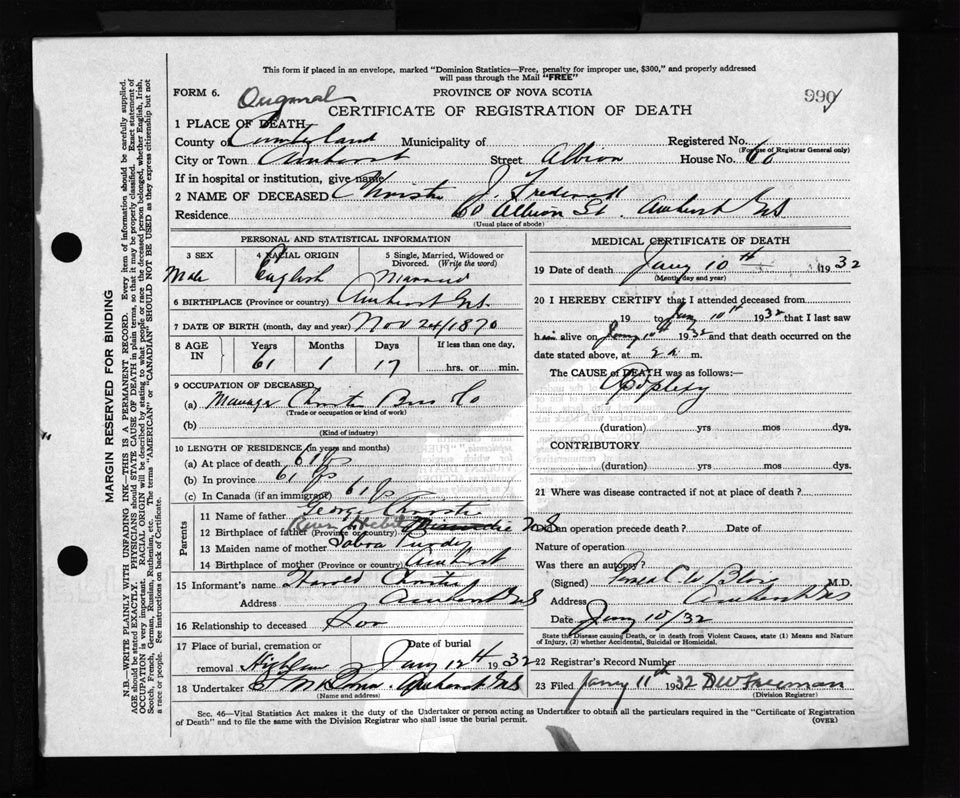 This form if placed in an envelope, marked "Dominion Statistics—Free, penalty for improper use, $300," and properly addressed
will pass through the Mail "FREE"
FORM 6. Original
PROVINCE OF NOVA SCOTIA
990
CERTIFICATE OF REGISTRATION OF DEATH
1 PLACE OF DEATH
County of Cumberland Municipality of Registered No.
(For use of Registrar General only)
City or Town Amherst Street Albion House No. 60
If in hospital or institution, give name
2 NAME OF DECEASED Christie J. Frederick
Residence 60 Albion St. Amherst NS
(Usual place of abode)
PERSONAL AND STATISTICAL INFORMATION
3 SEX 4 RACIAL ORIGIN 5 Single, Married, Widowed or
Divorced. (Write the word)
Male English Married
6 BIRTHPLACE (Province or country) Amherst N.S.
7 DATE OF BIRTH (month, day and year) Nov 24/1870
8 AGE IN Years Months Days If less than one day,
61 1 17 hrs. or min.
9 OCCUPATION OF DECEASED
(a) Manager Christie Bros Co
(Trade or occupation or kind of work)
(b)
(Kind of industry)
10 LENGTH OF RESIDENCE (in years and months)
(a) At place of death 61 yrs
(b) In province 61 yrs
(c) In Canada (if an immigrant) 61 yrs
Parents
11 Name of father George Christie
12 Birthplace of father (Province or country) River Hebert N.S
13 Maiden name of mother Purdy
14 Birthplace of mother (Province or country) Amherst
15 Informant's name Harold Christie
Address Amherst NS
16 Relationship to deceased Son
17 Place of burial, cremation or removal Highland
Date of burial Jany 12th 1932
18 Undertaker Amherst NS
(Name and address)
MEDICAL CERTIFICATE OF DEATH
19 Date of death Jany 10th 1932
(Month, day and year)
20 I HEREBY CERTIFY that I attended deceased from
19 to Jany 10th 1932 that I last saw
him alive on Jany 10th 1932 and that death occurred on the
date stated above, at m.
The CAUSE of DEATH was as follows:—
Apoplexy
(duration) yrs mos dys.
CONTRIBUTORY
(duration) yrs. mos. dys.
21 Where was disease contracted if not at place of death?
Did an operation precede death? Date of
Nature of operation
Was there an autopsy?
(Signed) M.D.
Address Amherst NS
Date Jany 10/32
State the Disease causing Death, or in death from Violent Causes, state (1) Means and Nature
of Injury, (2) whether Accidental, Suicidal or Homicidal.
22 Registrar's Record Number
23 Filed Janry 11th 1932 DW Freeman
(Division Registrar)
Sec. 46—Vital Statistics Act makes it the duty of the Undertaker or person acting as Undertaker to obtain all the particulars required in the "Certificate of Registration
of Death" and to file the same with the Division Registrar who shall issue the burial permit.
(OVER)
MARGIN RESERVED FOR BINDING
N.B.—WRITE PLAINLY WITH UNFADING INK—THIS IS A PERMANENT RECORD. Every item of information should be carefully supplied.
AGE should be stated EXACTLY. PHYSICIANS should STATE CAUSE OF DEATH in plain terms, so that it may be properly classified. Exact statement of
OCCUPATION is very important. RACIAL ORIGIN will be described by stating to what people or race the deceased person belonged, whether English, Irish,
Scotch, French, German, Russian, Ruthenian, etc. The terms "AMERICAN" or "CANADIAN" SHOULD NOT BE USED as they express citizenship but not
a race or people. See instructions on back of Certificate.